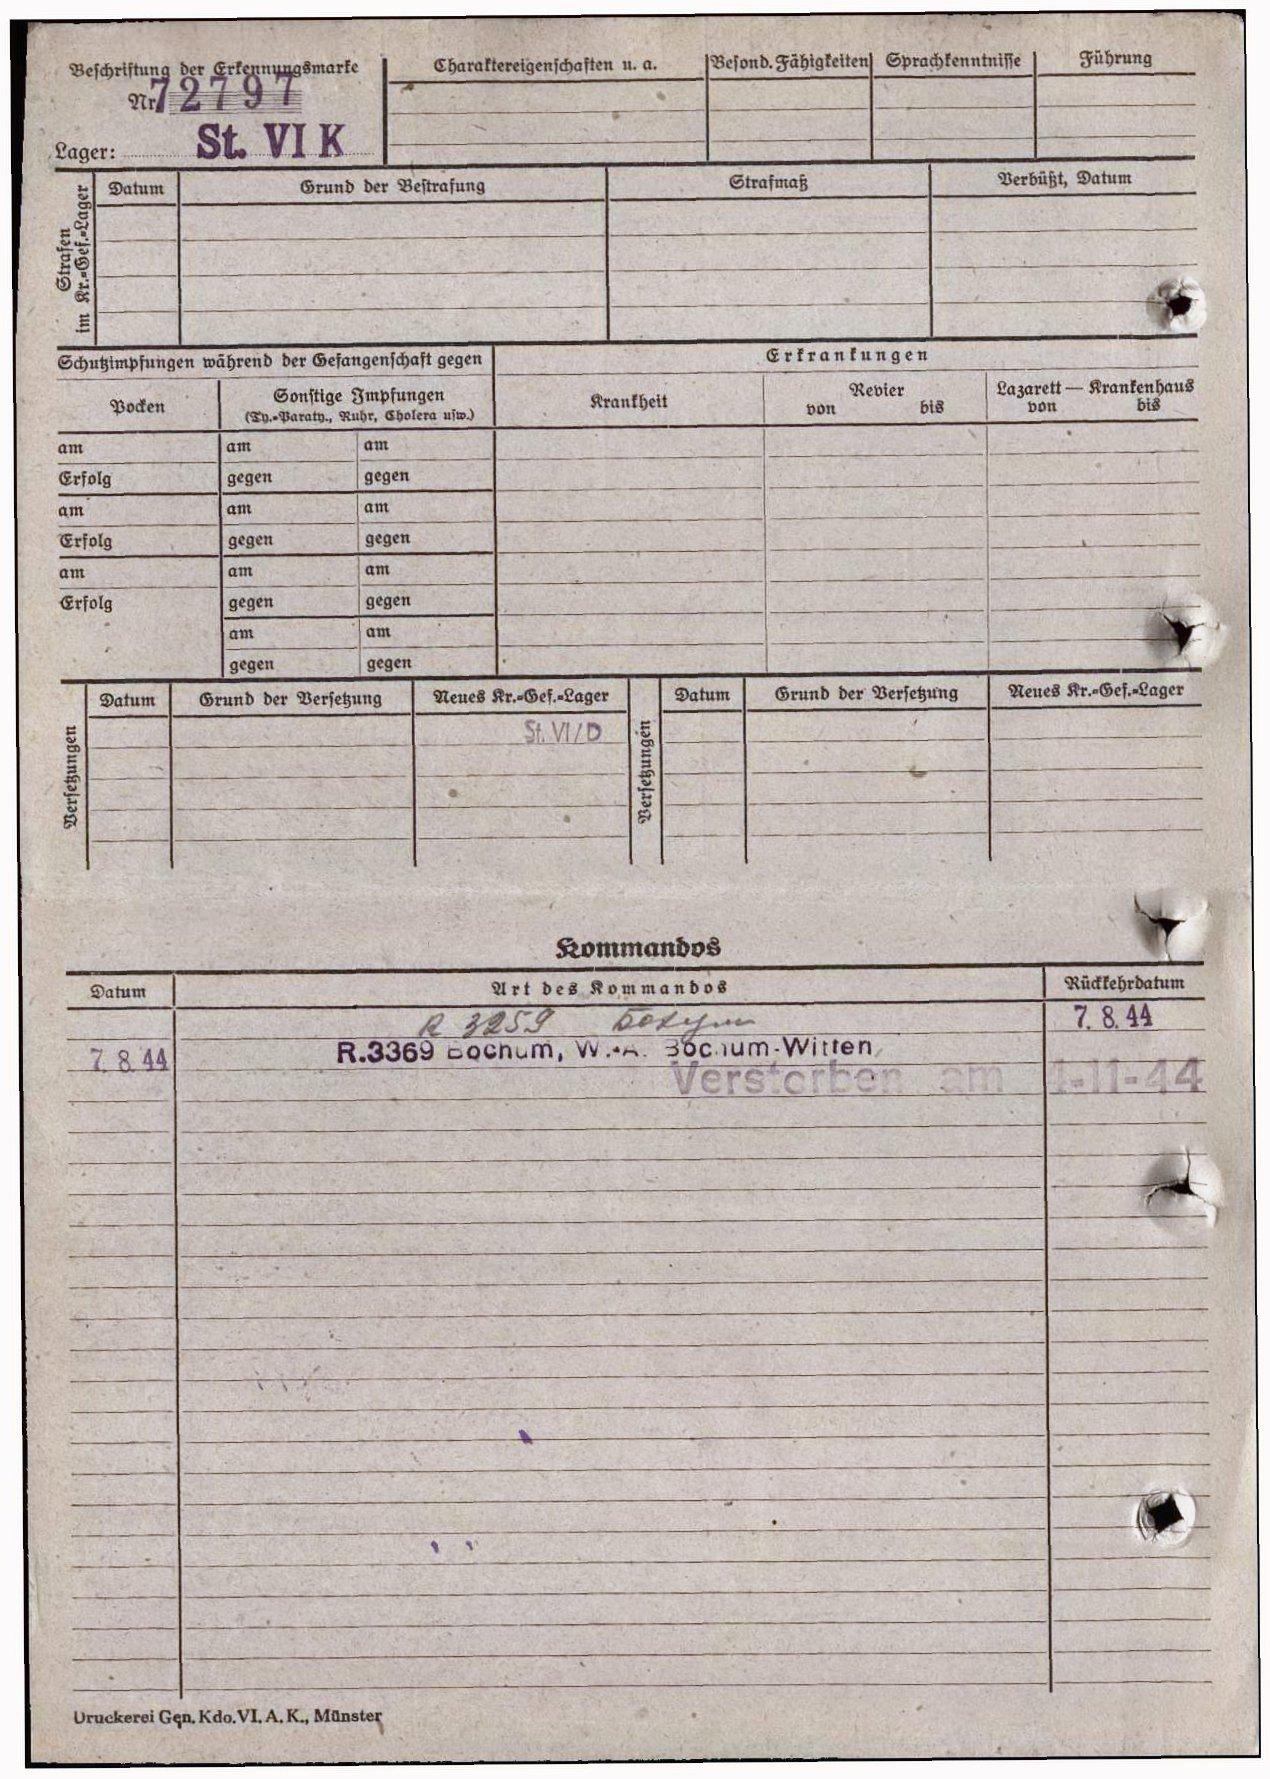 Beschriftung der Erkennungsmarke
Nr. 72797
Lager: St. VI K
Charaktereigenschaften u. a.
Besond. Fähigkeiten
Sprachkenntnisse
Führung
Strafen
im Kr.=Gef.=Lager
Datum
Grund der Bestrafung
Strafmaß
Verbüßt, Datum
Schutzimpfungen während der Gefangenschaft gegen
Erkrankungen
Pocken
Sonstige Impfungen
(Ty.=Paraty., Ruhr, Cholera usw.)
Krankheit
Revier
von bis
Lazarett — Krankenhaus
von bis
am am am
Erfolg gegen gegen
am am am
Erfolg gegen gegen
am am am
Erfolg gegen gegen
am am
gegen gegen
Versetzungen
Datum Grund der Versetzung Neues Kr.=Gef.=Lager
St. VI/D
Versetzungen
Datum Grund der Versetzung Neues Kr.=Gef.=Lager
Kommandos
Datum Art des Kommandos Rückkehrdatum
R 3259 7. 8. 44
7. 8. 44 R.3369 Bochum, W.-A. Bochum-Witten
Verstorben am 1-11-44
Druckerei Gen. Kdo. VI. A. K., Münster